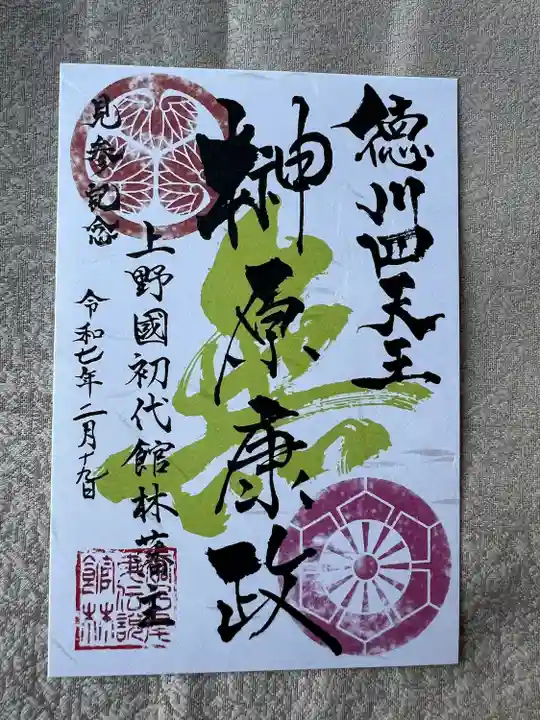 徳川四天王
榊原康政
上野國初代館林藩主
見参記念
令和七年二月十九日
館林